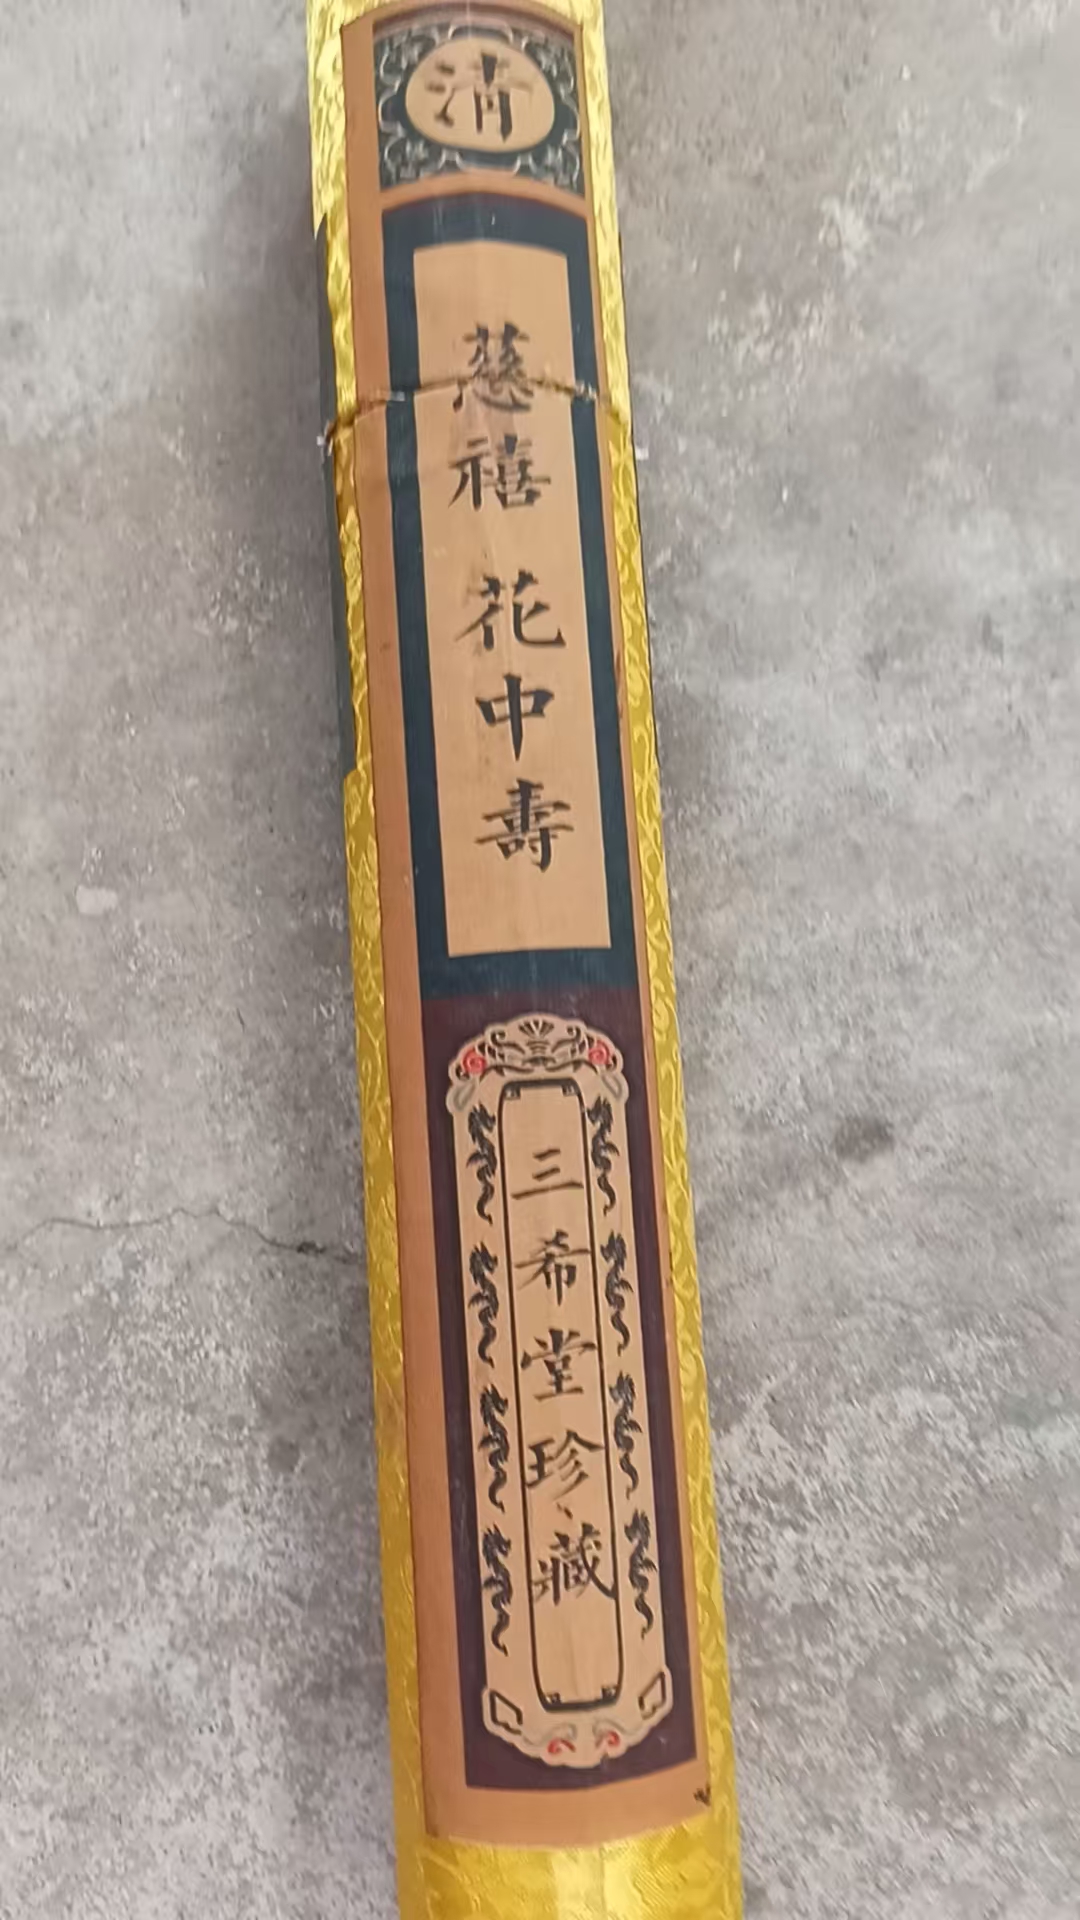 清
慈禧 花中壽
三希堂珍藏